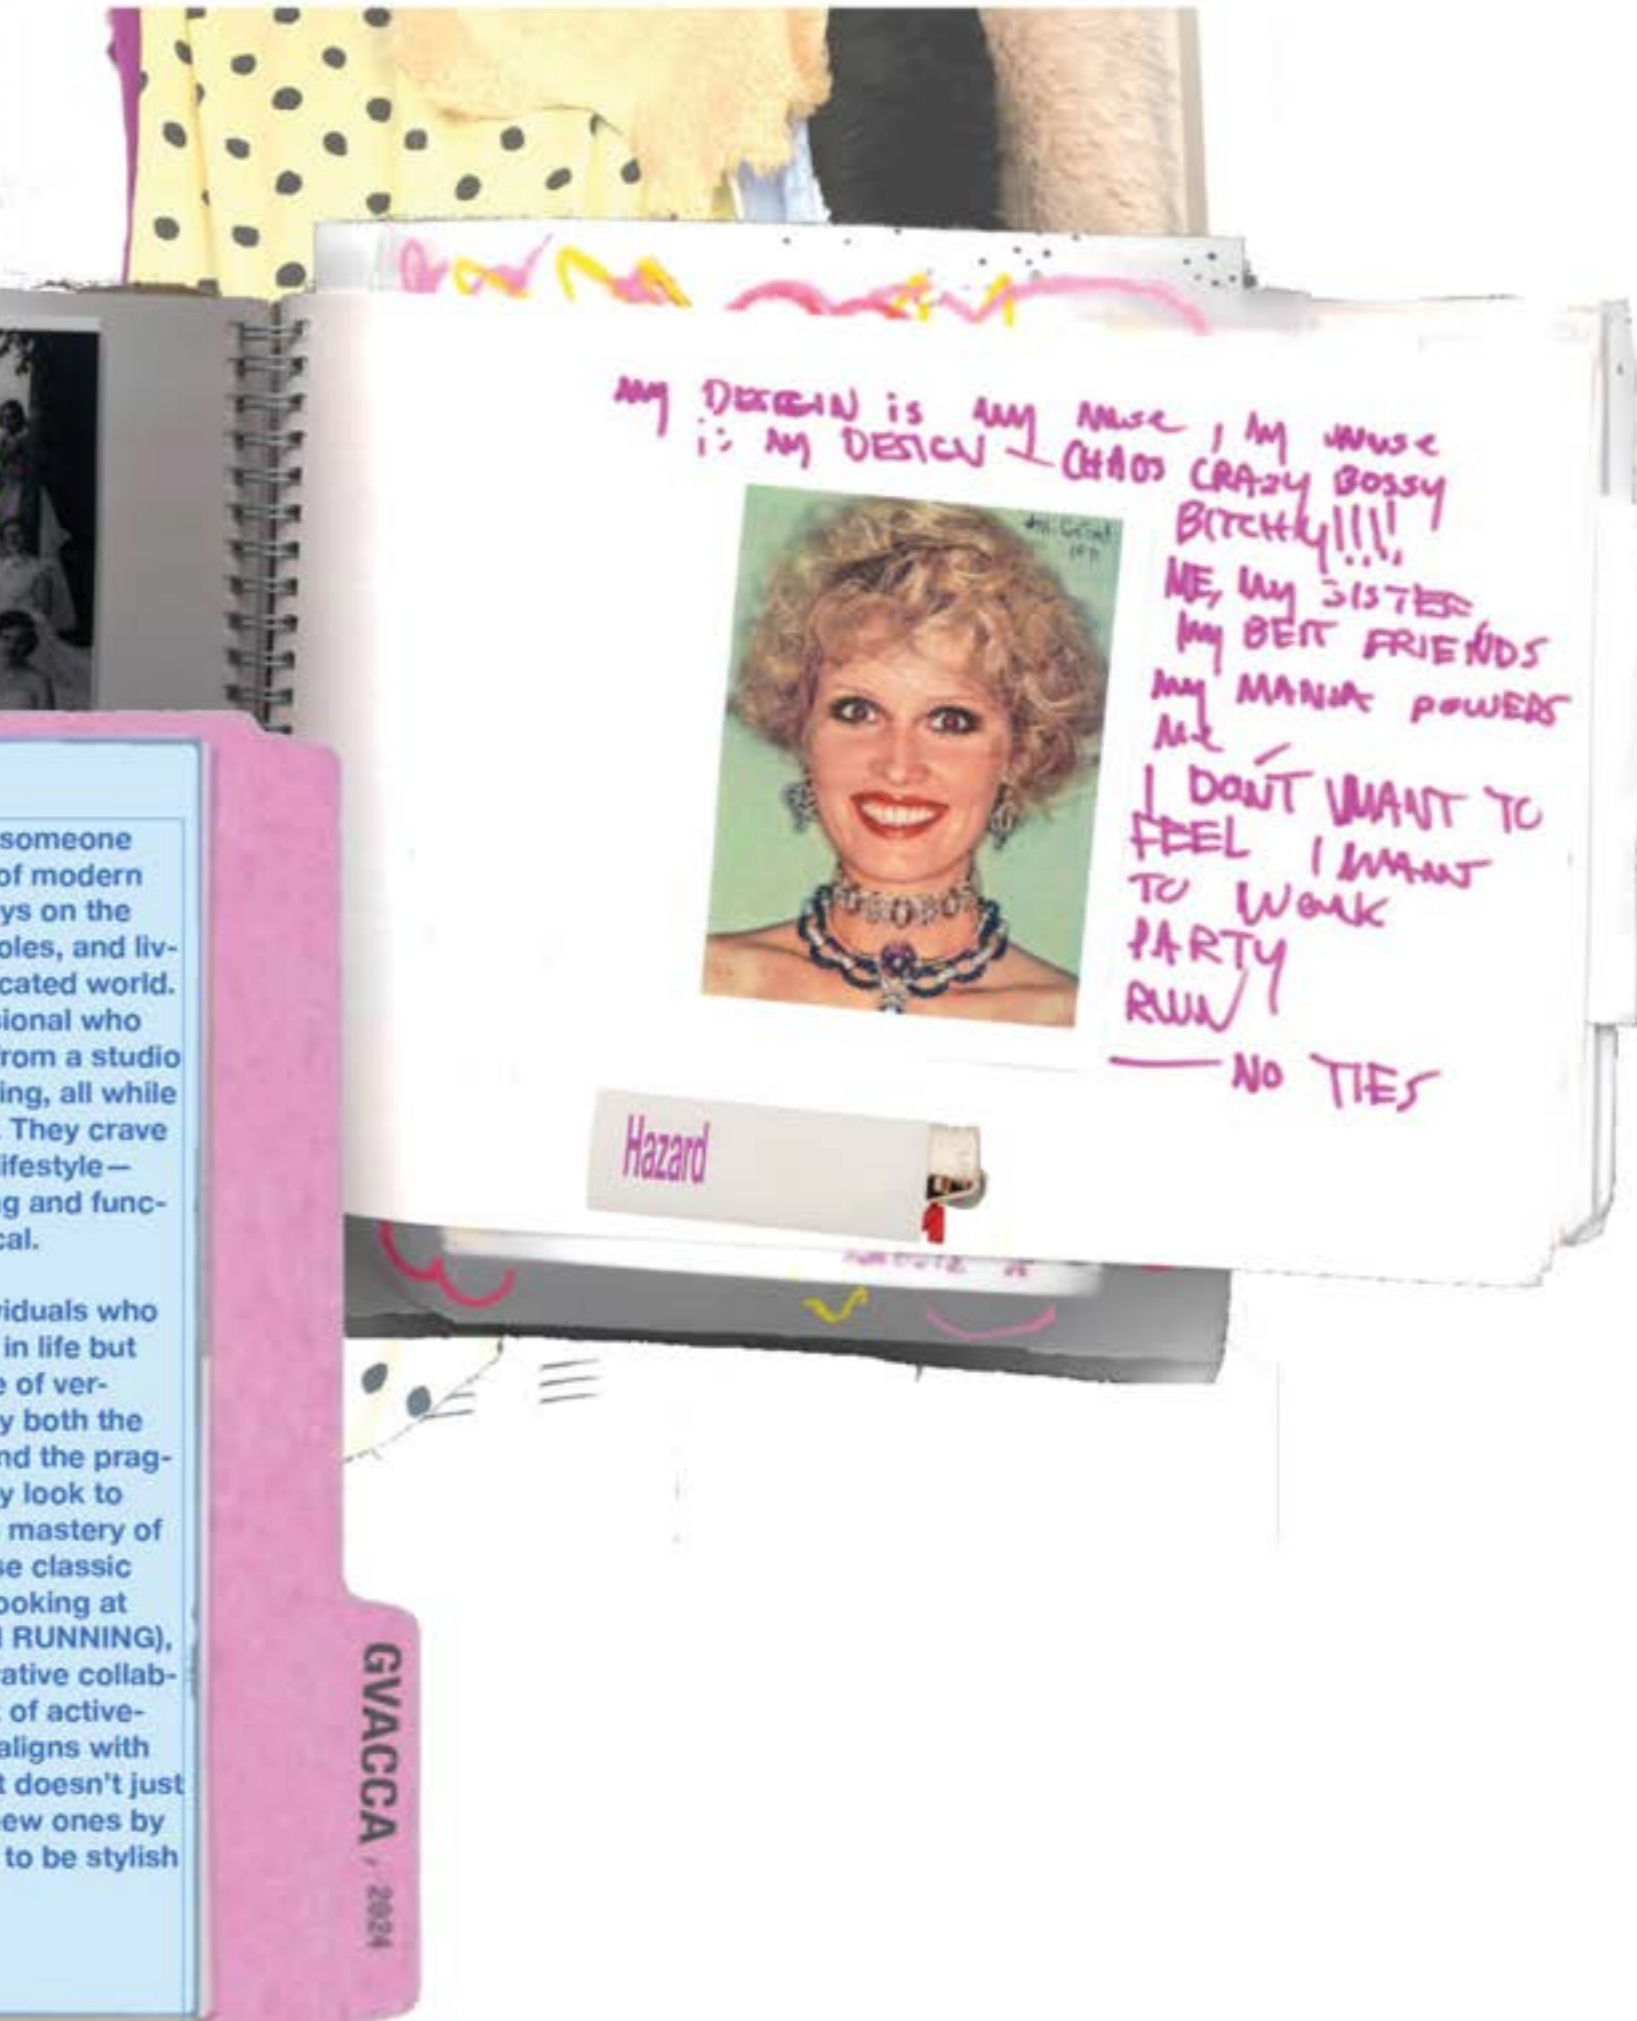 my DESIGN is my muse, my muse
is my DESIGN — CHAOS CRAZY BOSSY
BITCHY!!!!
ME, my SISTER,
my BEST FRIENDS
my MANIA POWERS
ME
I DON'T WANT TO
FEEL I WANT
TO WORK
PARTY
RUN
NO TIES
Hazard
someone
of modern
ys on the
oles, and liv-
cated world.
sional who
from a studio
ing, all while
. They crave
lifestyle—
g and func-
cal.
viduals who
in life but
e of ver-
y both the
nd the prag-
y look to
mastery of
se classic
ooking at
RUNNING),
ative collab-
of active-
aligns with
t doesn't just
ew ones by
to be stylish
GVACCA, 2024